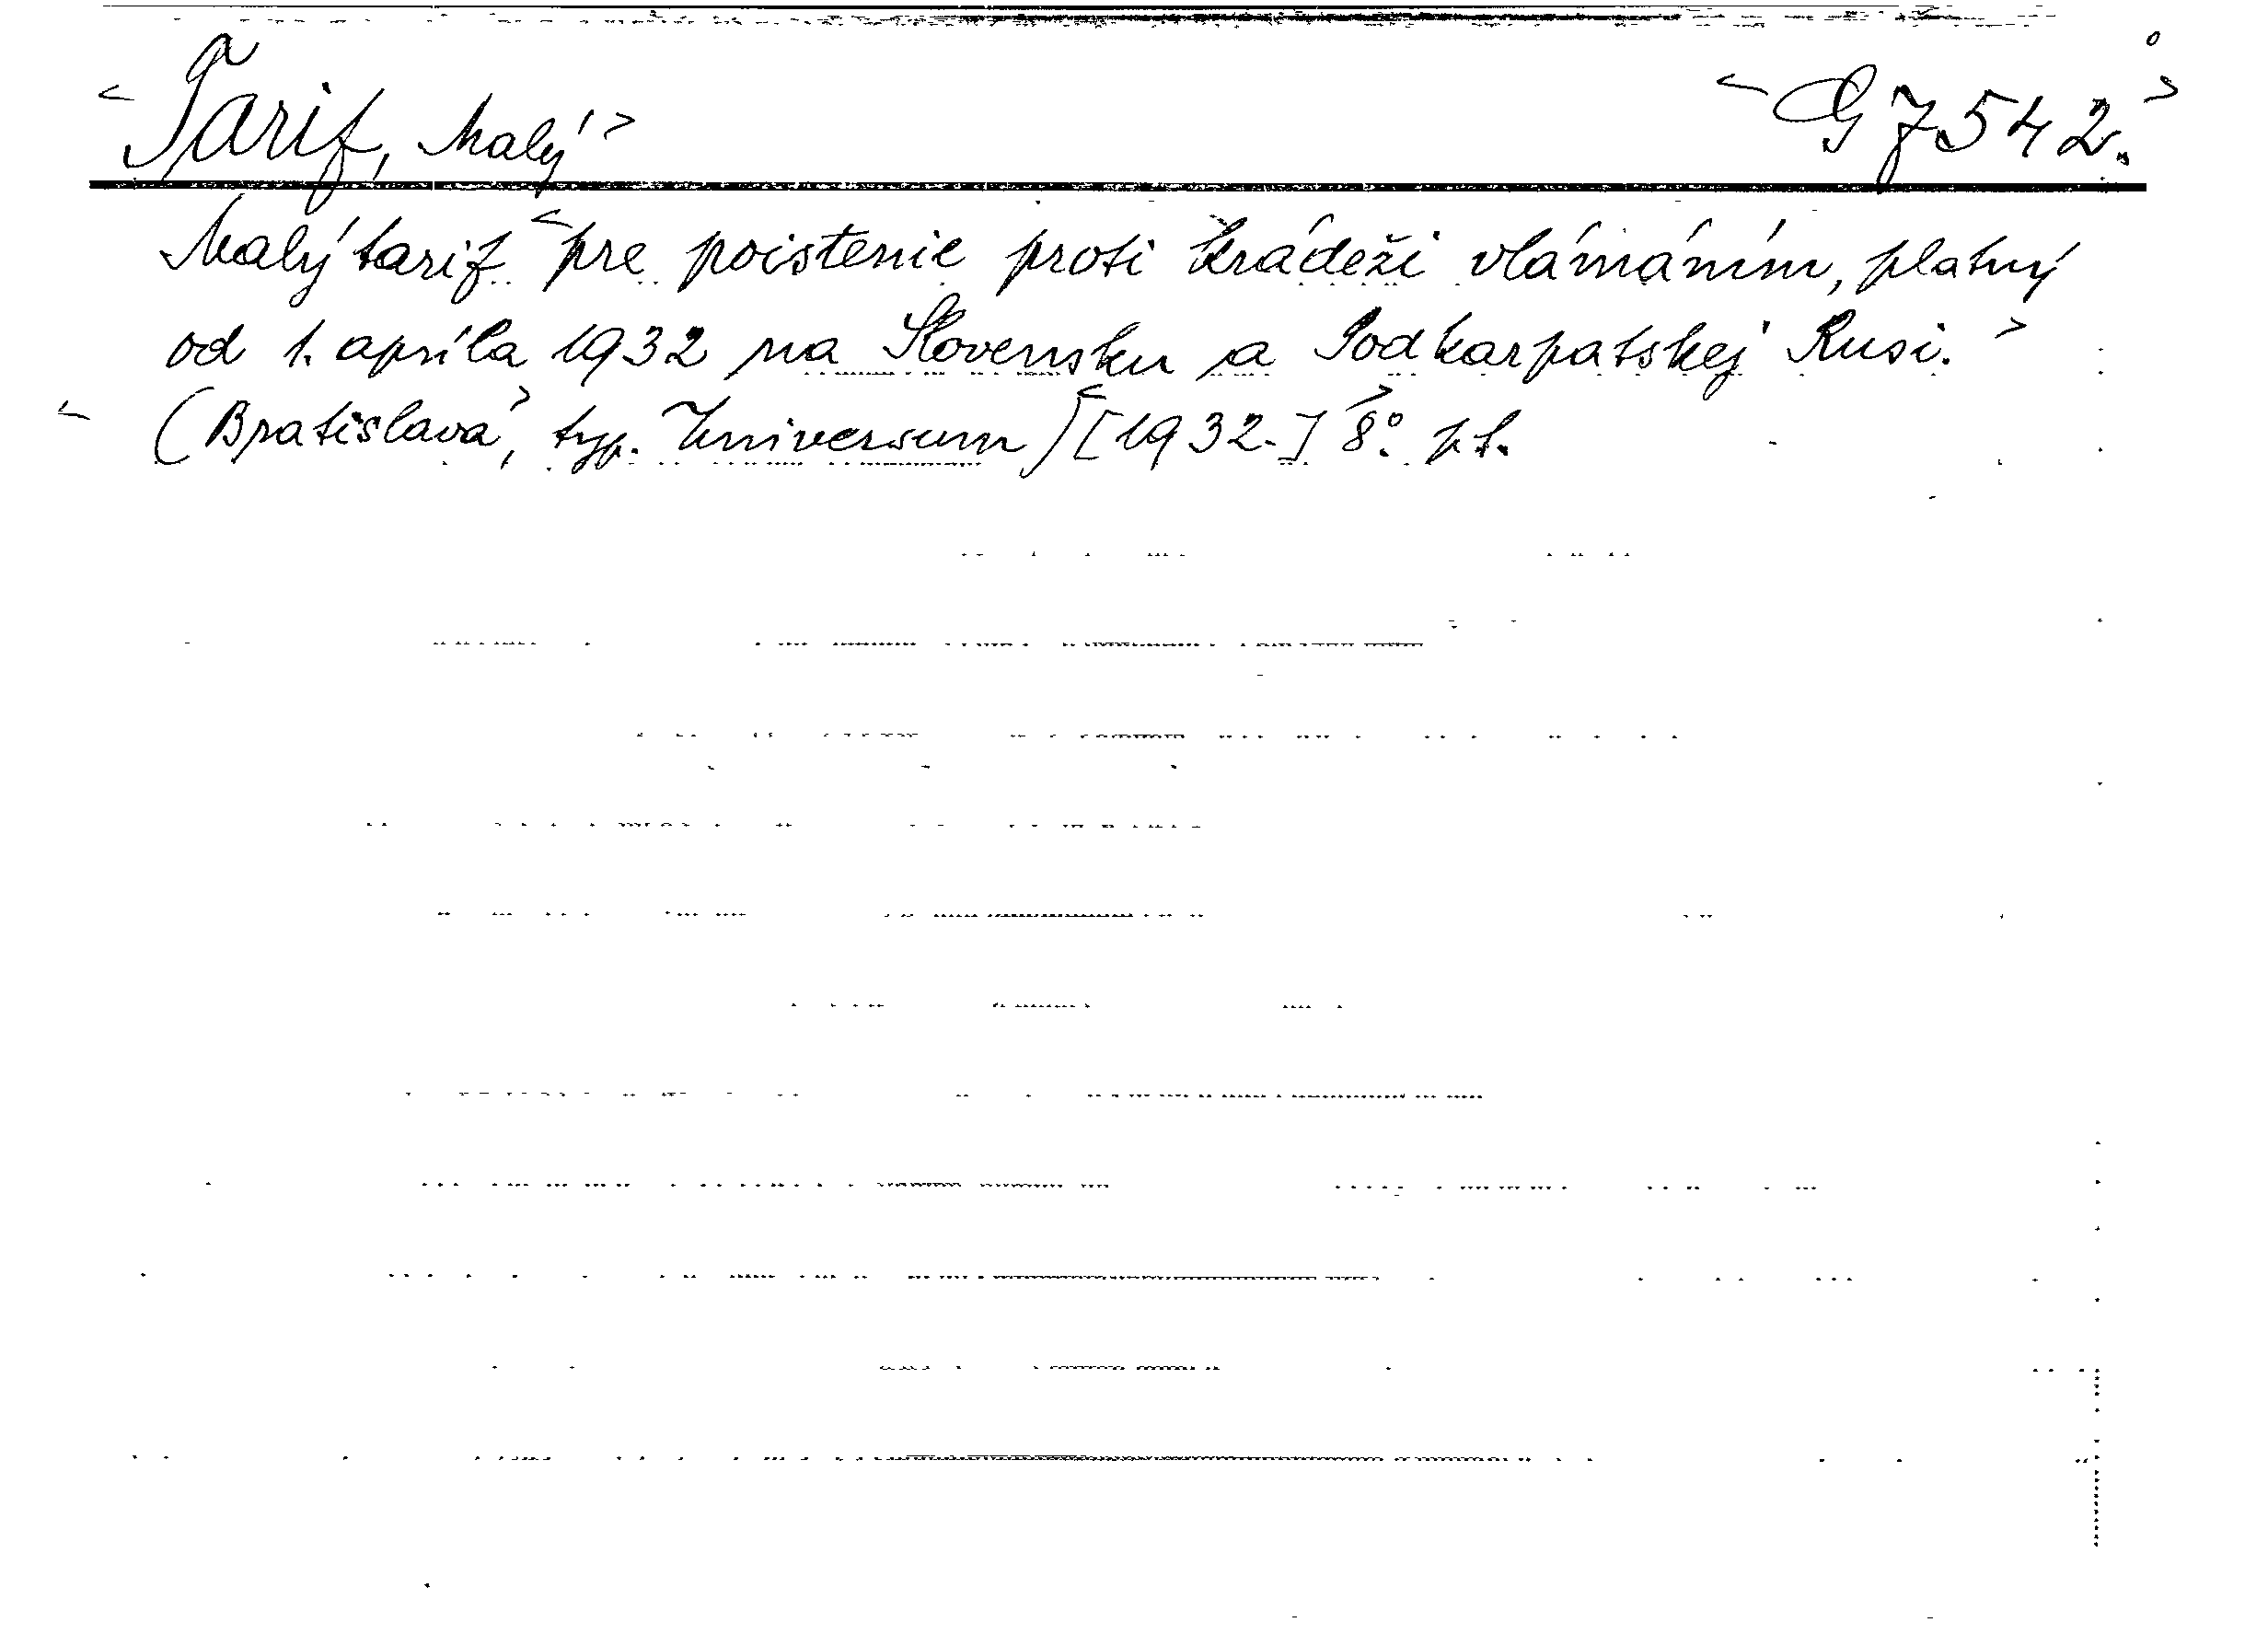 <Tarif, Malý> <G 7542.>
Malý tarif <pre poistenie proti krádeži vlámáním, platný
od 1. apríla 1932 na Slovensku a Podkarpatskej Rusi.>
<(Bratislava>, typ. Universum) <[1932.]> 8°. pl.